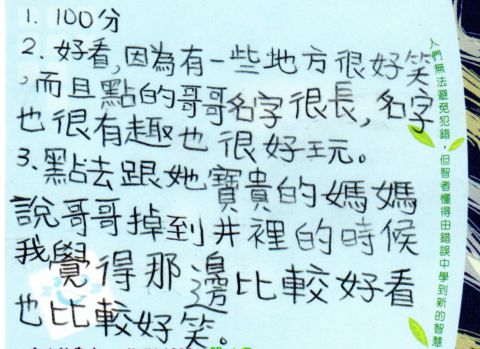 1. 100分
2. 好看,因為有一些地方很好笑
,而且點的哥哥名字很長,名字
也很有趣也很好玩。
3.點去跟她寶貴的媽媽
說哥哥掉到井裡的時候
我覺得那邊比較好看
也比較好笑。
人們無法避免犯錯,但智者懂得由錯誤中學到新的智慧